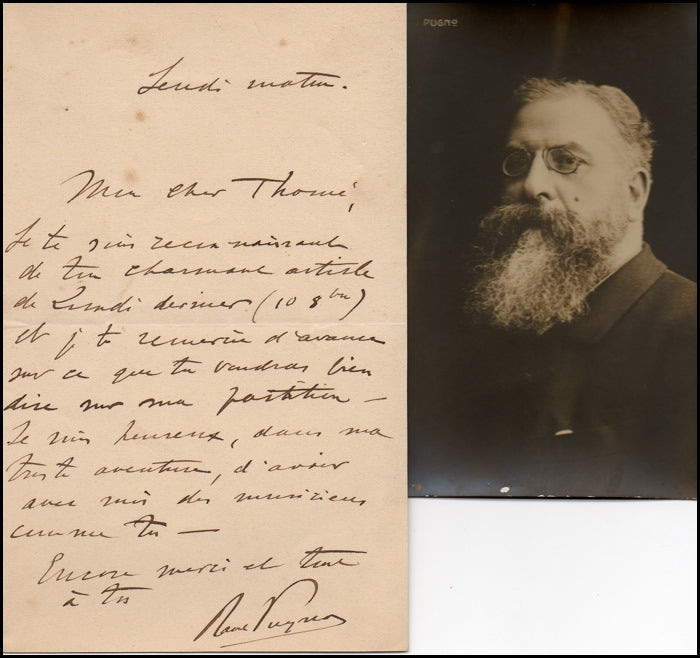 Lundi matin.
Mon cher Thomé,
Je te suis reconnaissant
de ton charmant article
de Lundi dernier (10 8bre)
et je te remercie d'avance
sur ce que tu voudras bien
dire sur ma partition —
Je suis heureux, dans ma
triste aventure, d'avoir
avec moi des musiciens
comme toi —
Encore merci et tout
à toi
Raoul Pugno
PUGNO